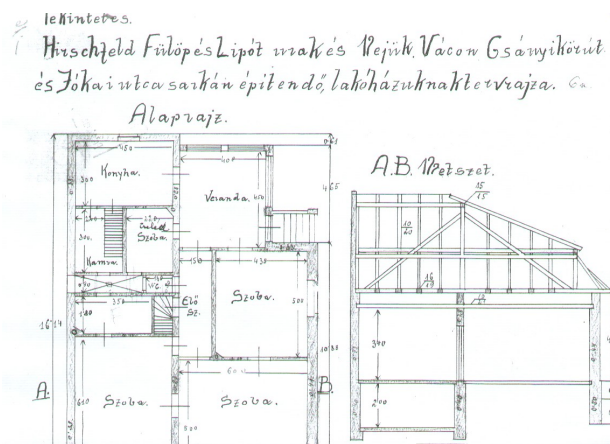 Tekintetes.
Hirschfeld Fülöp és Lipót urak és Nejük. Vácon Csányi körút
és Jókai utca sarkán építendő, lakóházuknak tervrajza.
Alaprajz.
A.B. Metszet.
Konyha.
Veranda.
Cseléd
Szoba.
Kamra.
WC
Elő
Sz.
Szoba.
A.
B.
Szoba.
Szoba.
450
400
300
450
465
220
300
150
430
500
350
1614
600
610
520
15
15
16
19
340
200